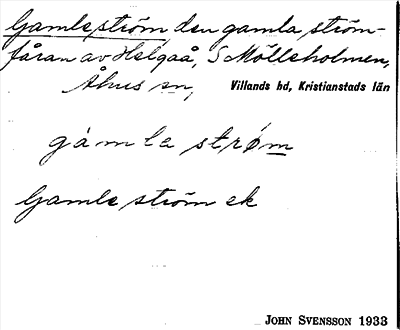 Gamleström den gamla ström-
fåran av Helgaå, S Mölleholmen,
Åhus sn, Villands hd, Kristianstads län
gamla strøm
Gamleström ek
JOHN SVENSSON 1933